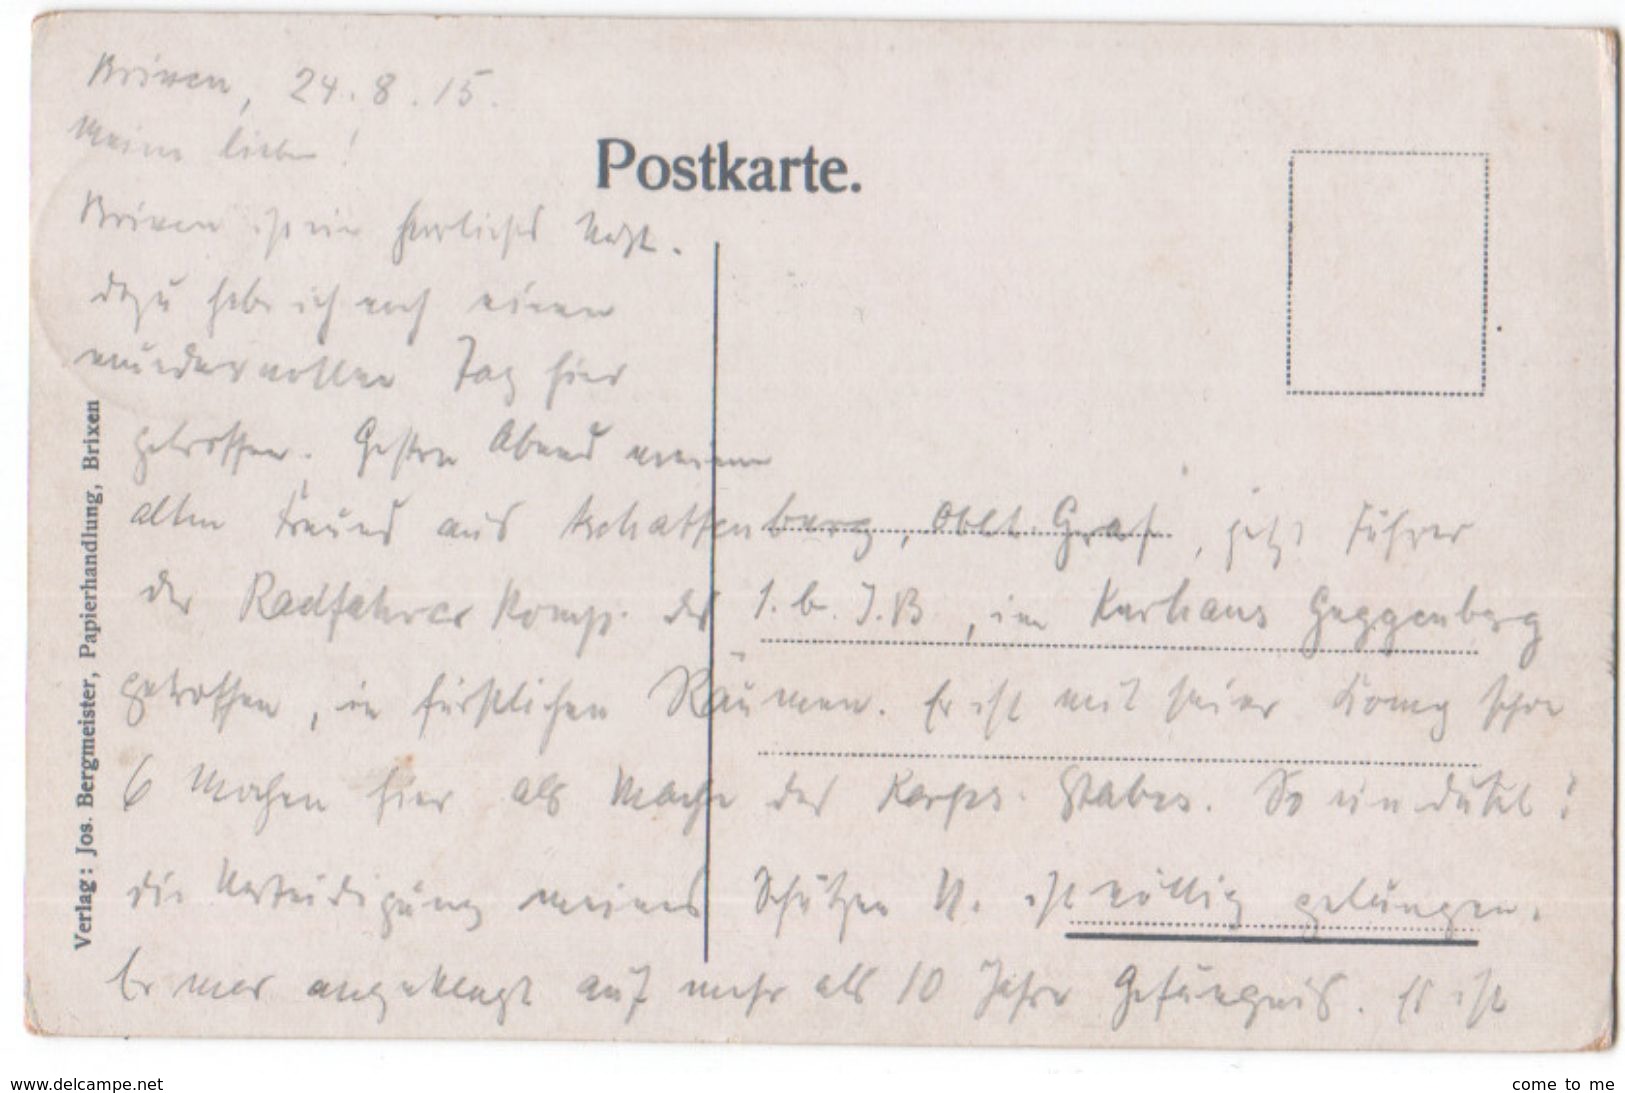 Brixen, 24. 8. 15.
Meine Lieben!
Postkarte.
Brixen ist ein herrliches Nest.
Dazu habe ich noch einen
wundervollen Tag hier
getroffen. Gestern Abend meinen
alten Freund aus Aschaffenburg, Oblt. Graf, jetzt Führer
der Radfahrer Komp. des 1. b. J. B, im Kurhaus Guggenberg
getroffen, in fürstlichen Räumen. Er ist mit seiner Komp schon
6 Wochen hier als Wache des Korps-Stabes. So ein Dusel!
Die Verteidigung meines Schützen N. ist völlig gelungen.
Er war angeklagt auf mehr als 10 Jahre Gefängnis. Es ist
Verlag: Jos. Bergmeister, Papierhandlung, Brixen
www.delcampe.net
come to me